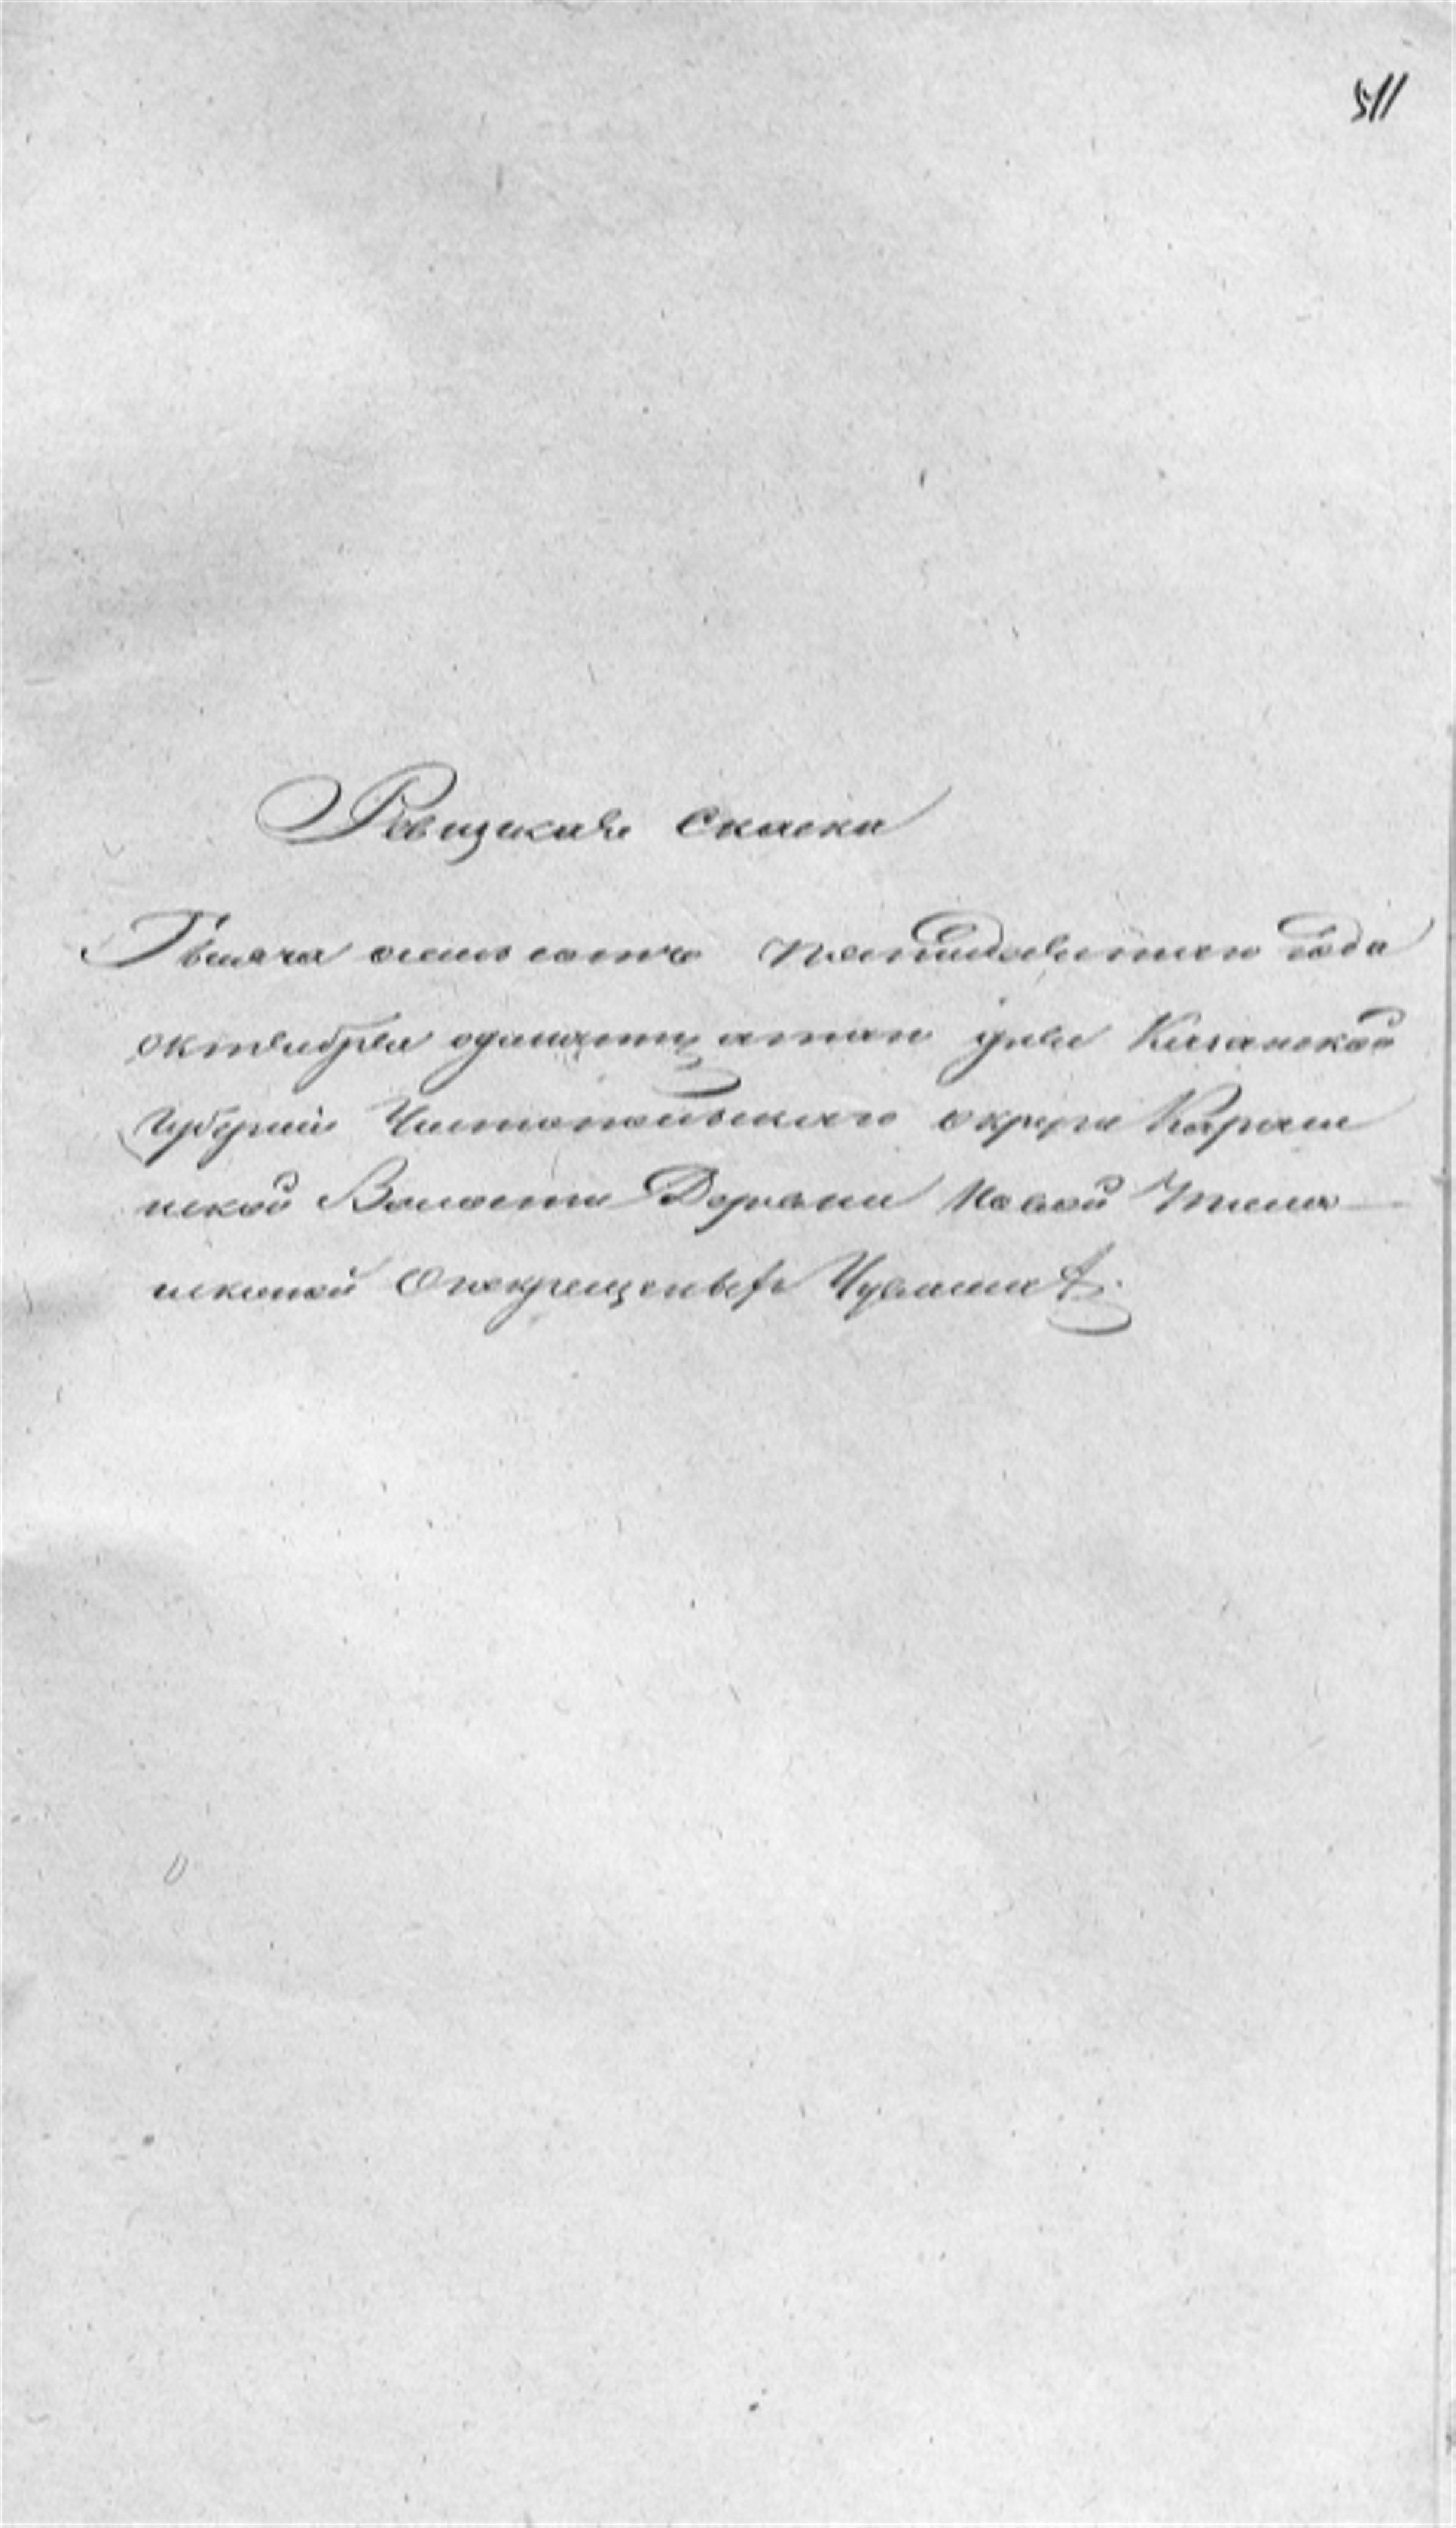 511
Ревизская Сказка
Тысяча осемь сотъ пятидесятаго года
октября одинаттцатаго дня Казанской
Губернии Чистопольскаго округа
нской Волости Деревни Новой
Чуваши